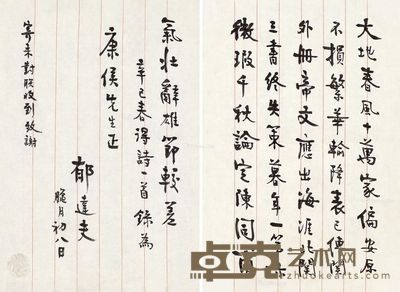 大地春風十萬家偏安原
不損繁華輸降表已傳關
外冊帝文應出海涯北闕
三書終失策暮年一
微瑕千秋論定陳同
氣壯辭雄節較差
辛巳春得詩一首錄為
康侯先生正
郁達夫
臘月初八日
寄来對联收到致謝
卓克艺术网
www.zhuokearts.com